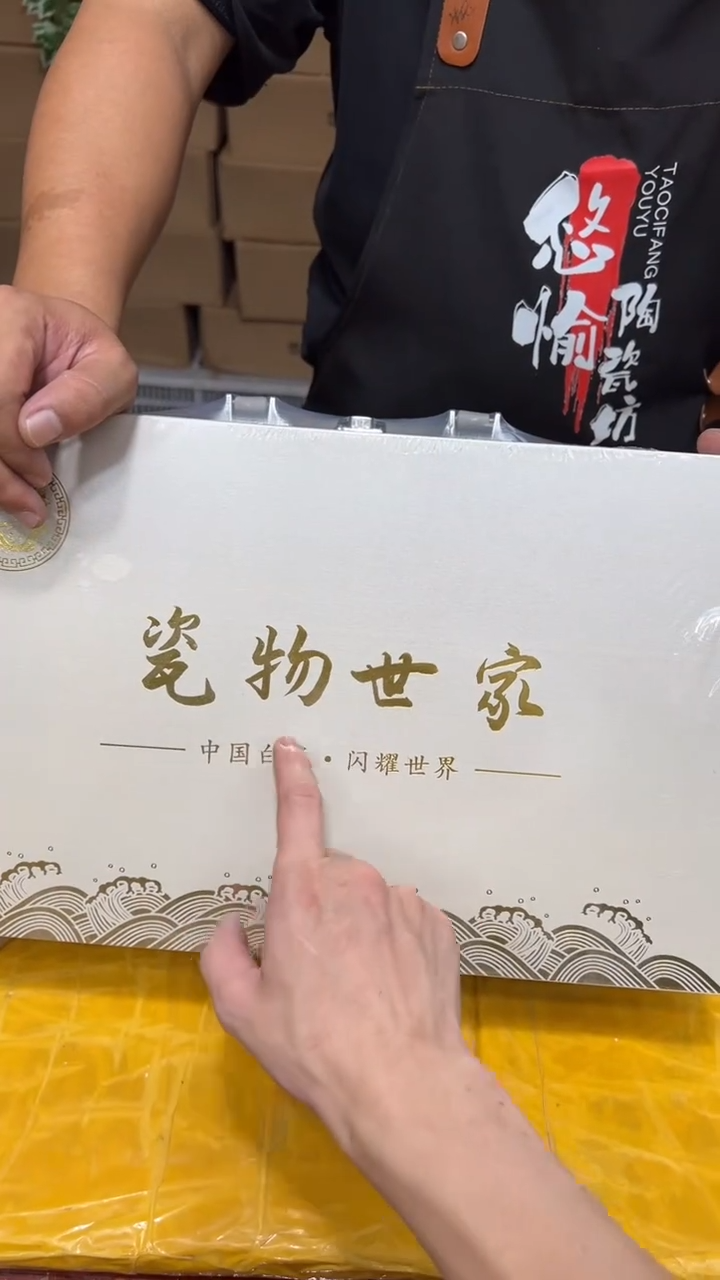 悠愉
陶瓷坊
TAOCIFANG
YOUYU
瓷物世家
中国白 · 闪耀世界